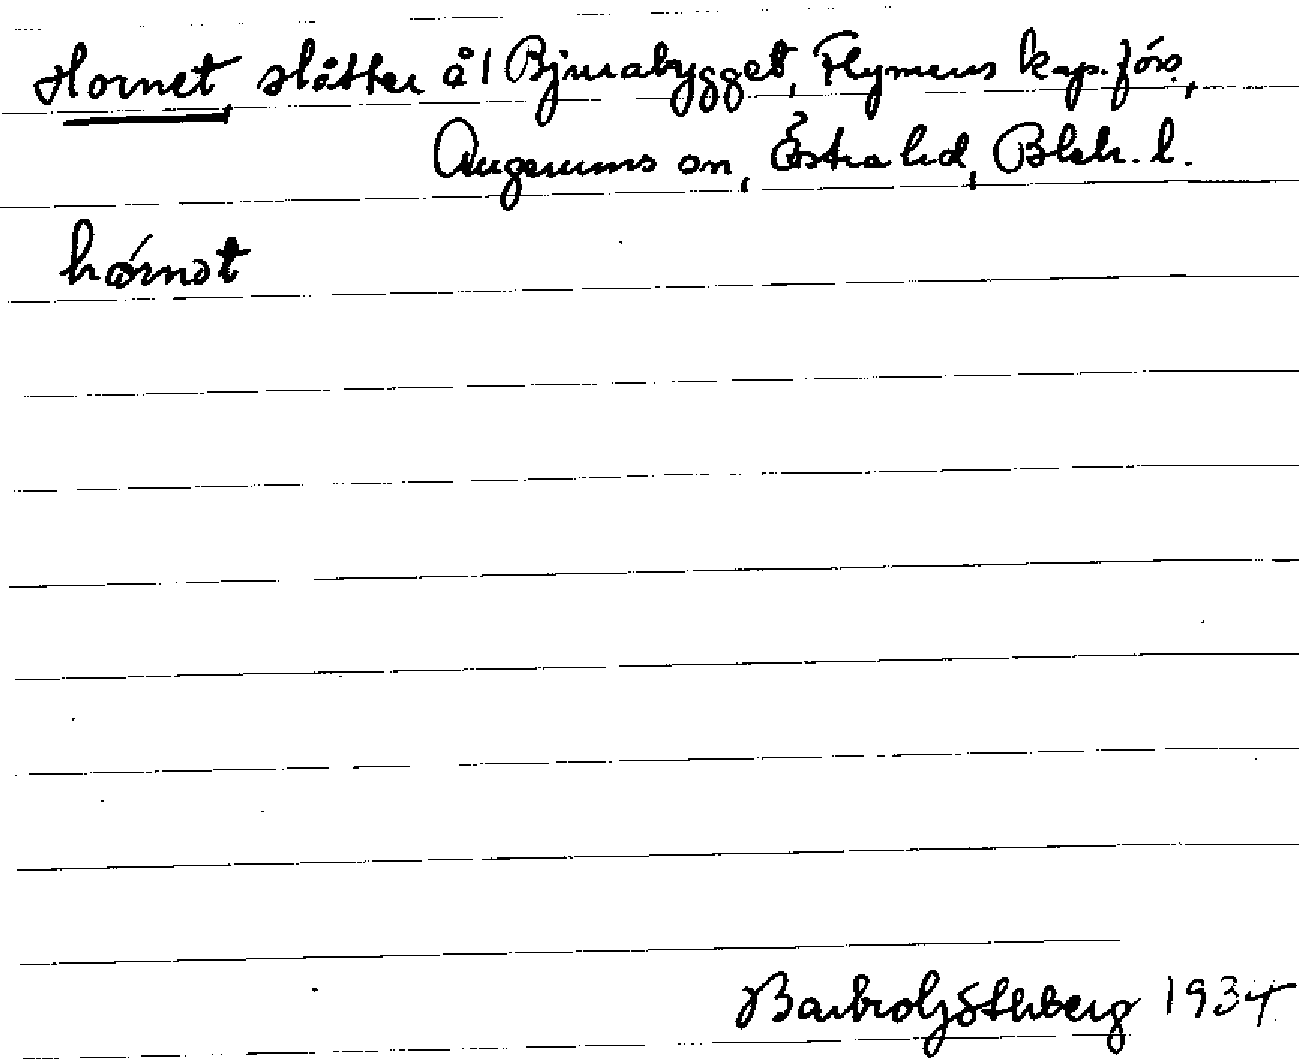 Hornet, slåtter å 1 Bjurabygget, Flymens kap.förs.,
Augerums sn, Östra hd, Blek. l.
hórnət
Barbro Götherberg 1934